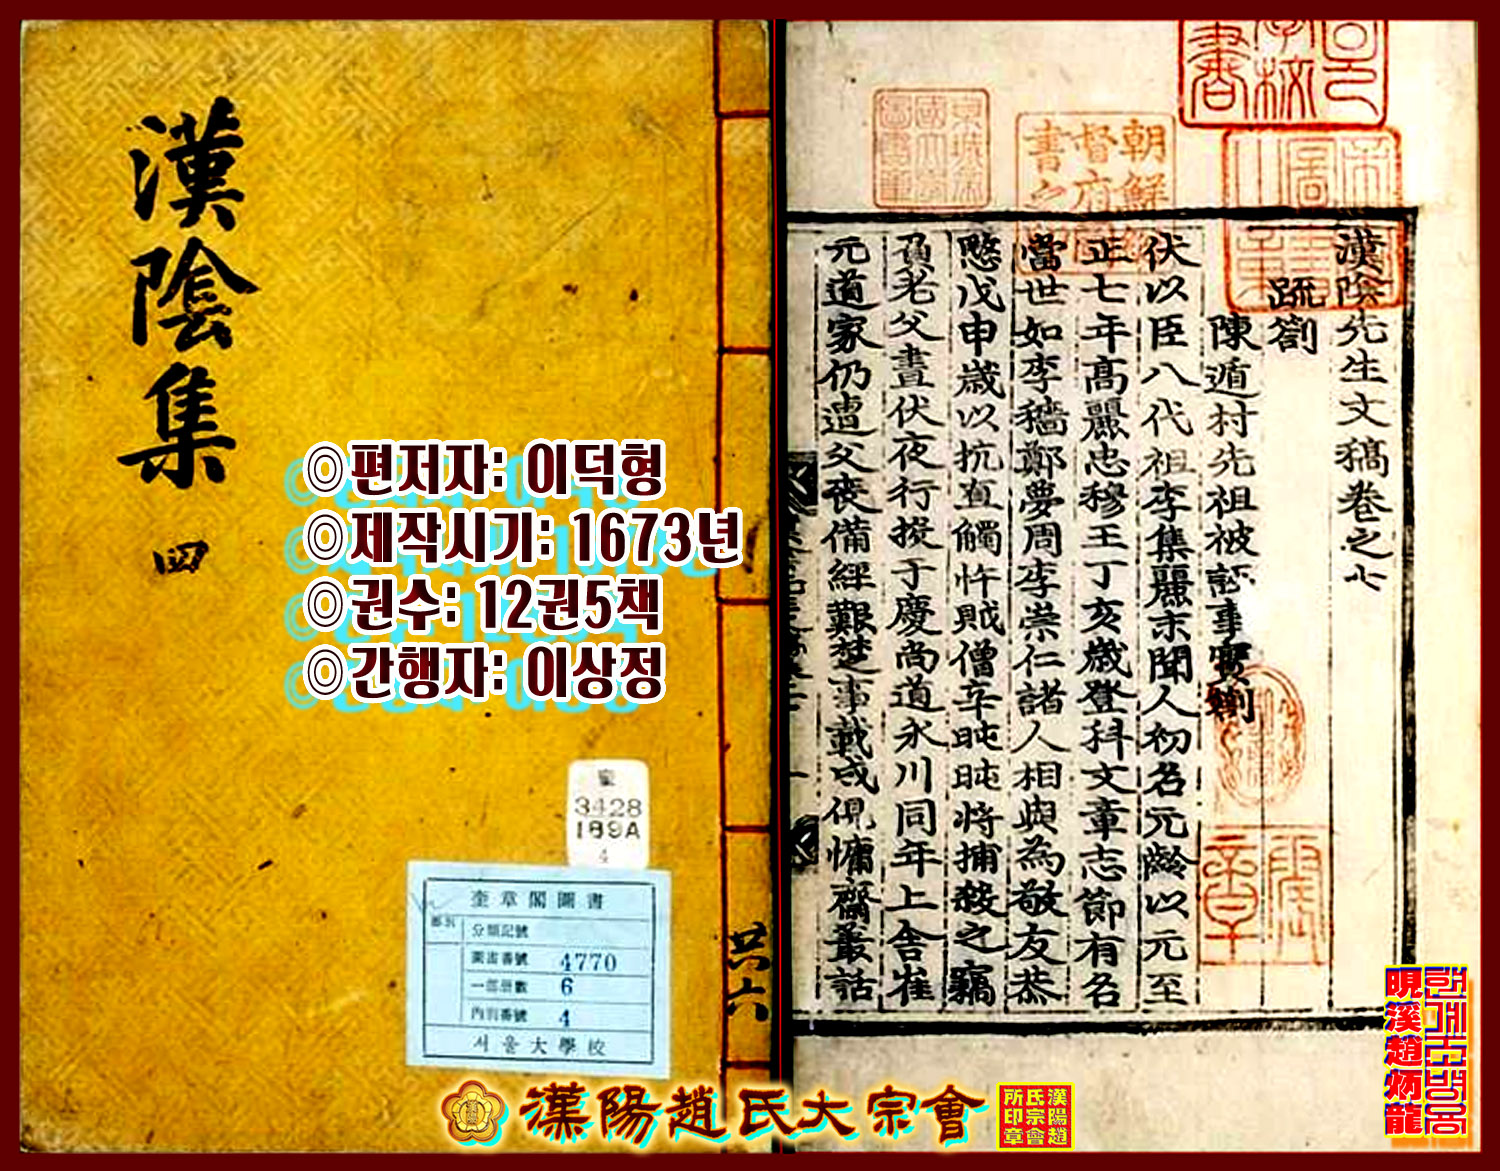 漢陰集
四
◎편저자: 이덕형
◎제작시기: 1673년
◎권수: 12권5책
◎간행자: 이상정
奎
3428
189A
4
奎章閣圖書
分類記號
圖書番號 4770
一部冊數 6
內羽番號 4
서울大學校
共六
漢陰先生文稿卷之七
疏箚
陳遁村先祖被誣事實劄
伏以臣八代祖李集麗末聞人初名元齡以元至
正七年高麗忠穆王丁亥歲登科文章志節有名
當世如李穡鄭夢周李崇仁諸人相與為敬友恭
愍戊申歲以抗直觸忤賊僧辛旽旽將捕殺之竊
負老父晝伏夜行投于慶尙道永川同年上舍崔
元道家仍遭父喪備經艱楚事載成俔慵齋叢話
朝鮮總
督府圖
書之
漢陽趙氏大宗會
漢陽趙
氏宗會
所印章
晛溪趙炳龍
현계조병룡